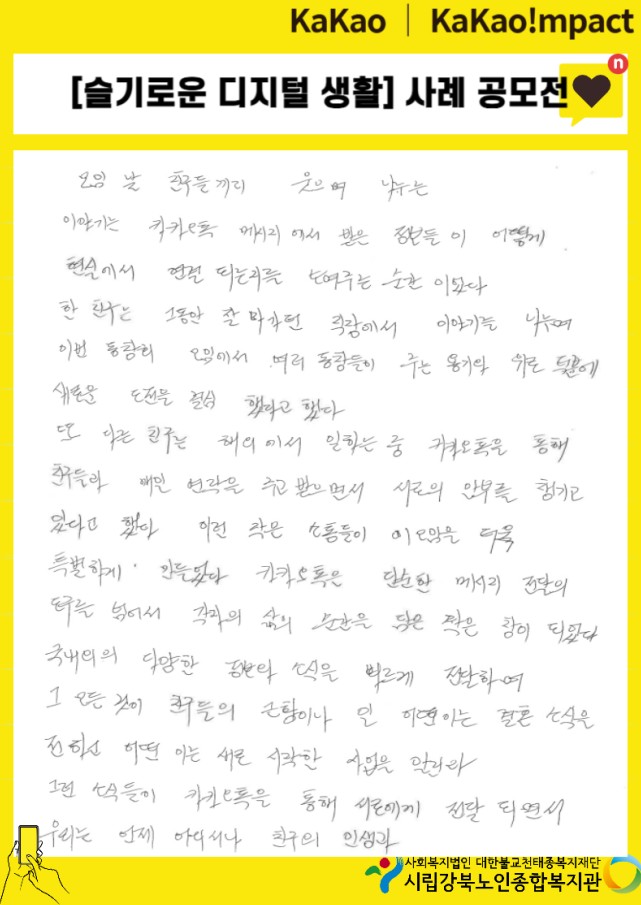 KaKao | KaKao!mpact
[슬기로운 디지털 생활] 사례 공모전
n
모임 날 친구들끼리 웃으며 나누는
이야기는 카카오톡 메시지에서 받은 정보들이 어떻게
현실에서 연결 되는지를 보여주는 순간 이었다
한 친구는 그동안 잘 다니던 직장에서 이야기를 나누며
이번 동창회 모임에서 여러 동창들이 주는 용기와 위로 덕분에
새로운 도전을 결심 했다고 했다
또 다른 친구는 해외에서 일하는 중 카카오톡을 통해
친구들과 매일 연락을 주고 받으면서 서로의 안부를 챙기고
있다고 했다 이런 작은 소통들이 이 모임을 더욱
특별하게 만들었다 카카오톡은 단순한 메시지 전달의
도구를 넘어서 각자의 삶의 순간을 담은 작은 창이 되었다
국내외의 다양한 정보와 소식을 빠르게 전달하며
그 모든 것이 친구들의 근황이나 일 어떤이는 결혼 소식을
전하고 어떤 이는 새로 시작한 사업을 알리라
그런 소식들이 카카오톡을 통해 서로에게 전달 되면서
우리는 언제 어디서나 친구의 인생과
사회복지법인 대한불교천태종복지재단
시립강북노인종합복지관